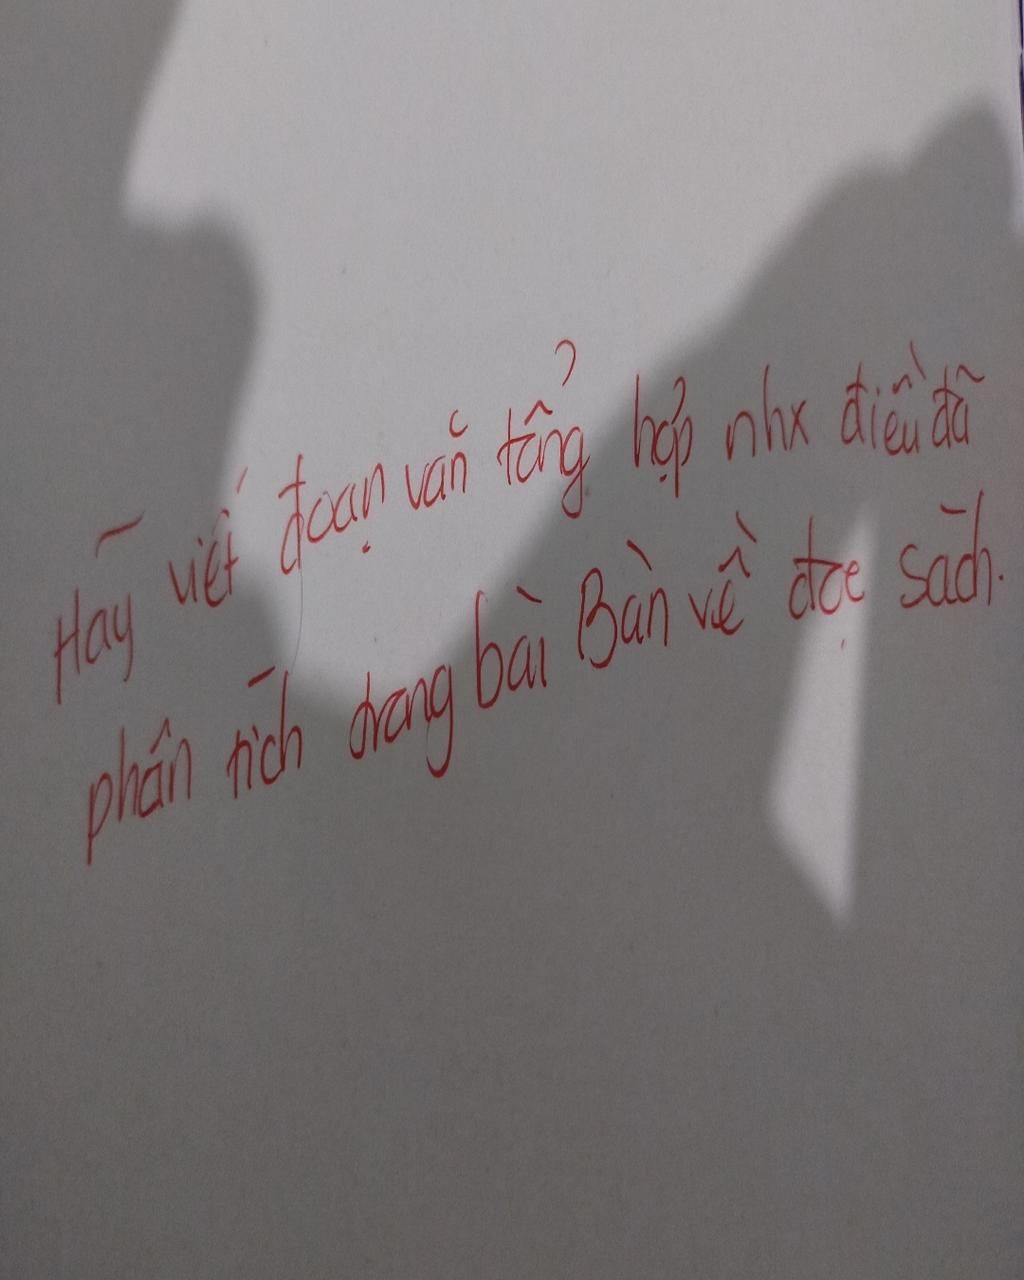 Hãy viết đoạn văn tổng hợp nhx điều đã
phân tích trong bài Bàn về đọc sách.